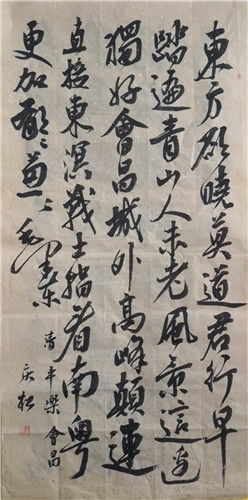 東方欲曉莫道君行早
踏遍青山人未老風景這邊
獨好會昌城外高峰顛連
直接東溟戰士指看南粵
更加鬱〻蔥〻毛澤東
清平樂會昌
庆松